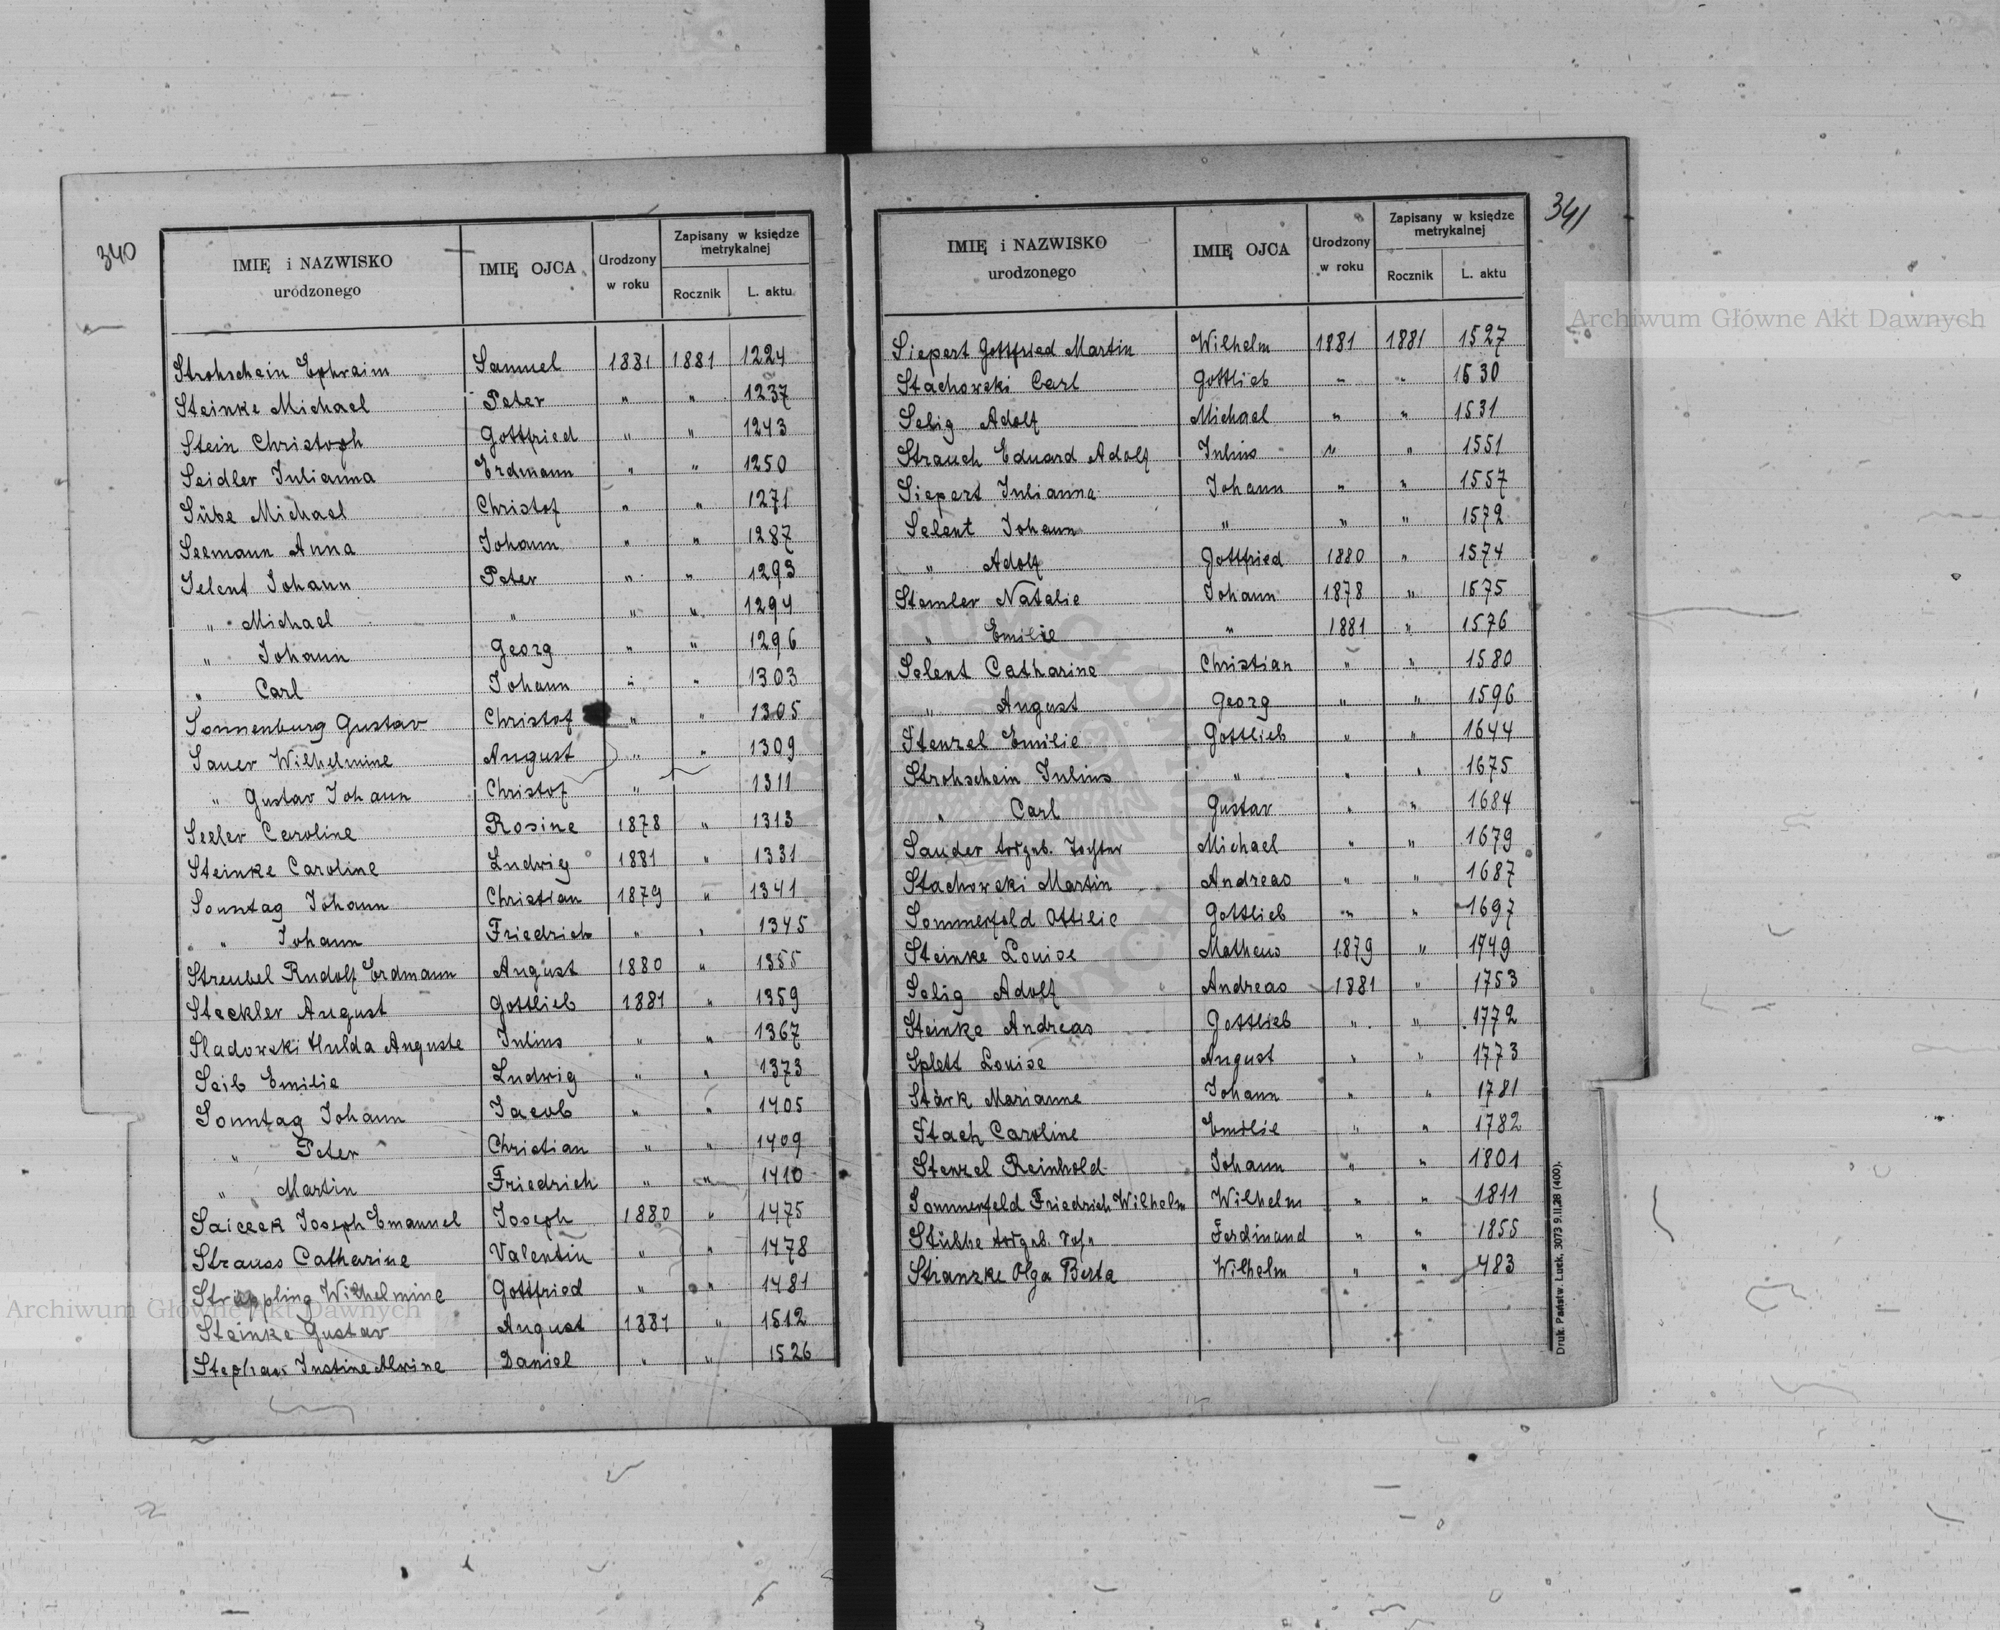 340
IMIĘ i NAZWISKO urodzonego IMIĘ OJCA Urodzony w roku Zapisany w księdze metrykalnej Rocznik L. aktu
Strohschein Ephraim Samuel 1881 1881 1224
Steinke Michael Peter " " 1237
Stein Christoph Gottfried " " 1243
Seidler Julianna Erdmann " " 1250
Sübe Michael Christof " " 1271
Seemann Anna Johann " " 1287
Selent Johann Peter " " 1293
" Michael " " " 1294
" Johann Georg " " 1296
" Carl Johann " " 1303
Sonnenburg Gustav Christof " " 1305
Sauer Wilhelmine August " " 1309
" Gustav Johann Christof " 1311
Seeler Caroline Rosine 1878 " 1313
Steinke Caroline Ludwig 1881 " 1331
Sonntag Johann Christian 1879 " 1341
" Johann Friedrich " " 1345
Streubel Rudolf Erdmann August 1880 " 1355
Steckler August Gottlieb 1881 " 1359
Sladowski Hulda Auguste Julius " " 1367
Seib Emilie Ludwig " " 1373
Sonntag Johann Jacob " " 1405
" Peter Christian " " 1409
" Martin Friedrich " " 1410
Saiccek Joseph Emanuel Joseph 1880 " 1475
Strauss Catharine Valentin " " 1478
Ströppling Wilhelmine Gottfried " " 1481
Steinke Gustav August 1881 " 1512
Stephan Justine Alwine Daniel " " 1526
341
IMIĘ i NAZWISKO urodzonego IMIĘ OJCA Urodzony w roku Zapisany w księdze metrykalnej Rocznik L. aktu
Siepert Gottfried Martin Wilhelm 1881 1881 1527
Stachowski Carl Gottlieb " " 1530
Selig Adolf Michael " " 1531
Strauch Eduard Adolf Julius " " 1551
Siepert Julianna Johann " " 1557
Selent Johann " " " 1572
" Adolf Gottfried 1880 " 1574
Stemler Natalie Johann 1878 " 1575
" Emilie " 1881 " 1576
Selent Catharine Christian " " 1580
" August Georg " " 1596
Stenzel Emilie Gottlieb " " 1644
Strohschein Julius " " " 1675
" Carl Gustav " " 1684
Sauder todgeb. Tochter Michael " " 1679
Stachowski Martin Andreas " " 1687
Sommerfeld Ottilie Gottlieb " " 1697
Steinke Louise Matheus 1879 " 1749
Selig Adolf Andreas 1881 " 1753
Steinke Andreas Gottlieb " " 1772
Splett Louise August " " 1773
Stärk Marianne Johann " " 1781
Stach Caroline Emilie " " 1782
Stenzel Reinhold Johann " " 1801
Sommerfeld Friedrich Wilhelm Wilhelm " " 1811
Stübbe todgeb. Sohn Ferdinand " " 1855
Stranzke Olga Berta Wilhelm " " 483
Druk. Państw. Łuck, 3073 9.II.28 (400).
Archiwum Główne Akt Dawnych
Archiwum Główne Akt Dawnych